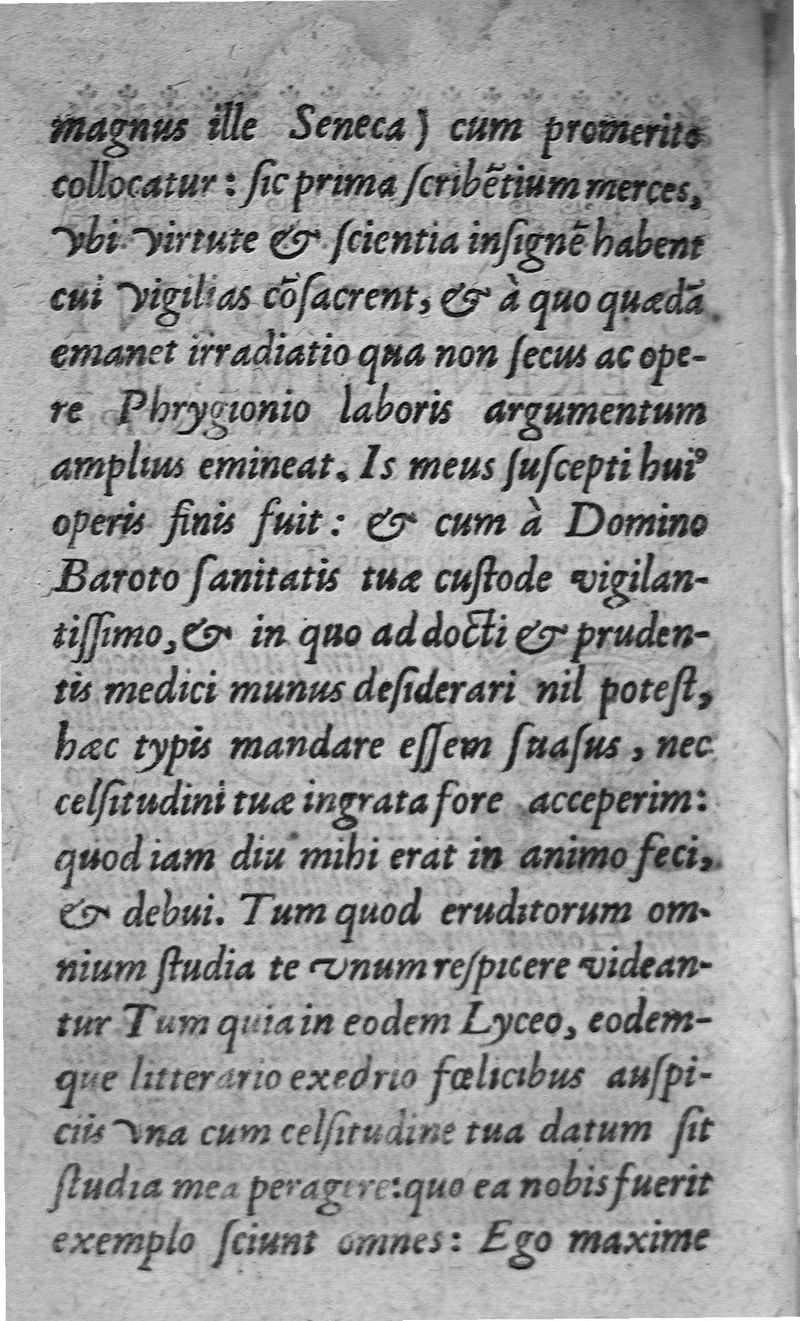 magnus ille Seneca) cum promerito
collocatur: ſic prima ſcribẽtium merces,
vbi virtute & ſcientia inſignẽ habent
cui vigilias cõſacrent, & à quo quædã
emanet irradiatio qua non ſecus ac ope-
re Phrygionio laboris argumentum
amplius emineat. Is meus ſuſcepti huiꝰ
operis finis fuit: & cum à Domino
Baroto ſanitatis tuæ cuſtode vigilan-
tiſſimo, & in quo ad docti & pruden-
tis medici munus deſiderari nil poteſt,
hæc typis mandare eſſem ſuaſus, nec
celſitudini tuæ ingrata fore acceperim:
quod iam diu mihi erat in animo feci,
& debui. Tum quod eruditorum om-
nium ſtudia te vnum reſpicere videan-
tur Tum quia in eodem Lyceo, eodem-
que litterario exedrio fœlicibus auſpi-
ciis vna cum celſitudine tua datum ſit
ſtudia mea peragere: quo ea nobis fuerit
exemplo ſciunt omnes: Ego maxime